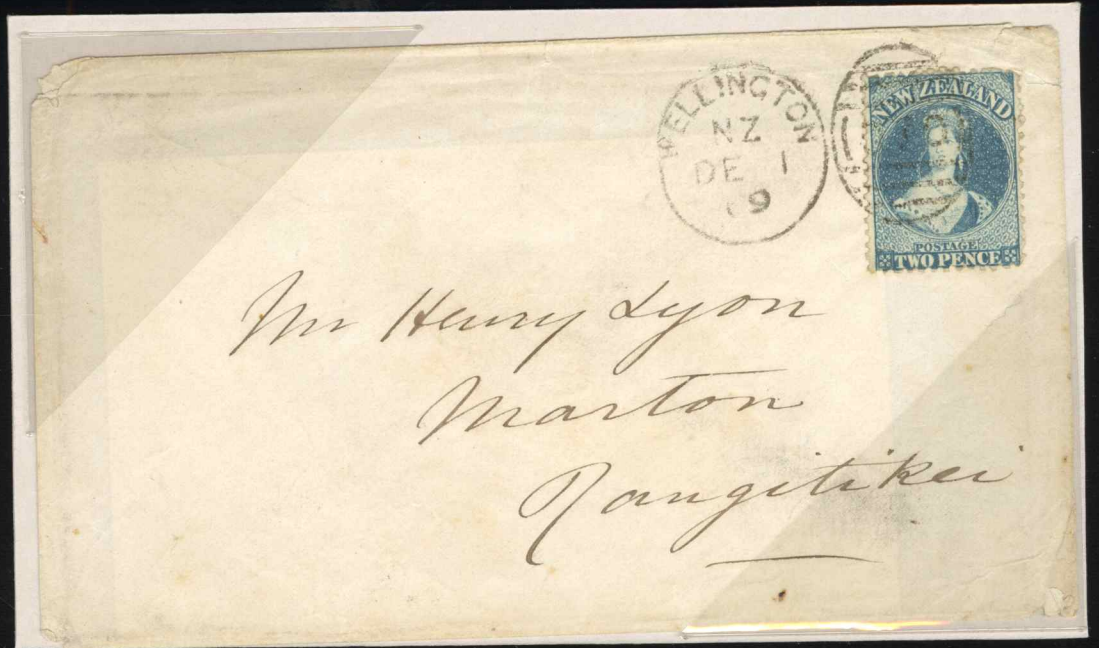 WELLINGTON
NZ
DE 1
69
NEW ZEALAND
POSTAGE
TWO PENCE
Mr Henry Lyon
Marton
Rangitikei